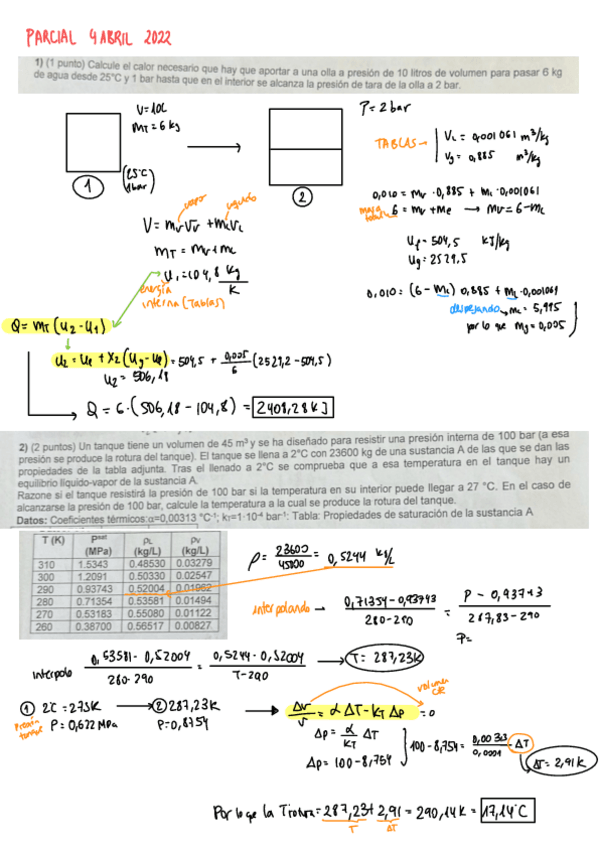 PARCIAL 4 ABRIL 2022
1) (1 punto) Calcule el calor necesario que hay que aportar a una olla a presión de 10 litros de volumen para pasar 6 kg
de agua desde 25°C y 1 bar hasta que en el interior se alcanza la presión de tara de la olla a 2 bar.
V=10L
MT=6kg
P=2bar
TABLAS
VL = 0,001061 m³/kg
Vg = 0,885 m³/kg
(25°C
1bar)
1
2
0,010 = mv · 0,885 + mL · 0,001061
masa total
6 = mv + me → mv = 6-mL
vapor
líquido
V = mv Vv + mL VL
mT = mv + mL
Uf = 504,5 KJ/kg
Ug = 2529,5
U1 = 104,8 kg/K
energía
interna (Tablas)
0,010 = (6 - mL) 0,885 + mL · 0,001061
despejando → mL = 5,995
por lo que mg = 0,005
Q = mT (U2 - U1)
U2 = Ue + X2 (Ug - Ue) = 504,5 + 0,005/6 (2529,2 - 504,5)
U2 = 506,18
Q = 6 · (506,18 - 104,8) = 2408,28 KJ
2) (2 puntos) Un tanque tiene un volumen de 45 m³ y se ha diseñado para resistir una presión interna de 100 bar (a esa
presión se produce la rotura del tanque). El tanque se llena a 2°C con 23600 kg de una sustancia A de las que se dan las
propiedades de la tabla adjunta. Tras el llenado a 2°C se comprueba que a esa temperatura en el tanque hay un
equilibrio líquido-vapor de la sustancia A.
Razone si el tanque resistirá la presión de 100 bar si la temperatura en su interior puede llegar a 27 °C. En el caso de
alcanzarse la presión de 100 bar, calcule la temperatura a la cual se produce la rotura del tanque.
Datos: Coeficientes térmicos:α=0,00313 °C⁻¹; kT=1·10⁻⁴ bar⁻¹: Tabla: Propiedades de saturación de la sustancia A
T (K) Psat (MPa) ρL (kg/L) ρV (kg/L)
310 1.5343 0.48530 0.03279
300 1.2091 0.50330 0.02547
290 0.93743 0.52004 0.01962
280 0.71354 0.53581 0.01494
270 0.53183 0.55080 0.01122
260 0.38700 0.56517 0.00827
ρ = 23600/45000 = 0,5244 kg/L
interpolando → 0,71354 - 0,93743 / 280-290 = P - 0,93743 / 287,23 - 290
P=
interpolo 0,53581 - 0,52004 / 280-290 = 0,5244 - 0,52004 / T-290 → T = 287,23K
1 2°C = 275K → 2 287,23K → Δv/v = α ΔT - KT Δp = 0
volumen cte
Presión tanque
P = 0,622 MPa
P = 0,8754
Δp = α/KT ΔT
Δp = 100 - 8,754
100 - 8,754 = 0,00313/0,0001 · ΔT
ΔT = 2,91K
Por lo que la Trotura = 287,23 + 2,91 = 290,14K = 17,14°C
T
ΔT